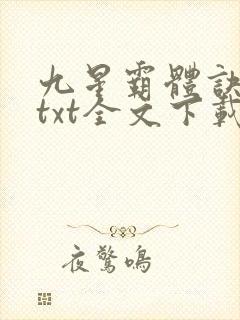 九星霸體訣
txt全文下載
夜驚鳴